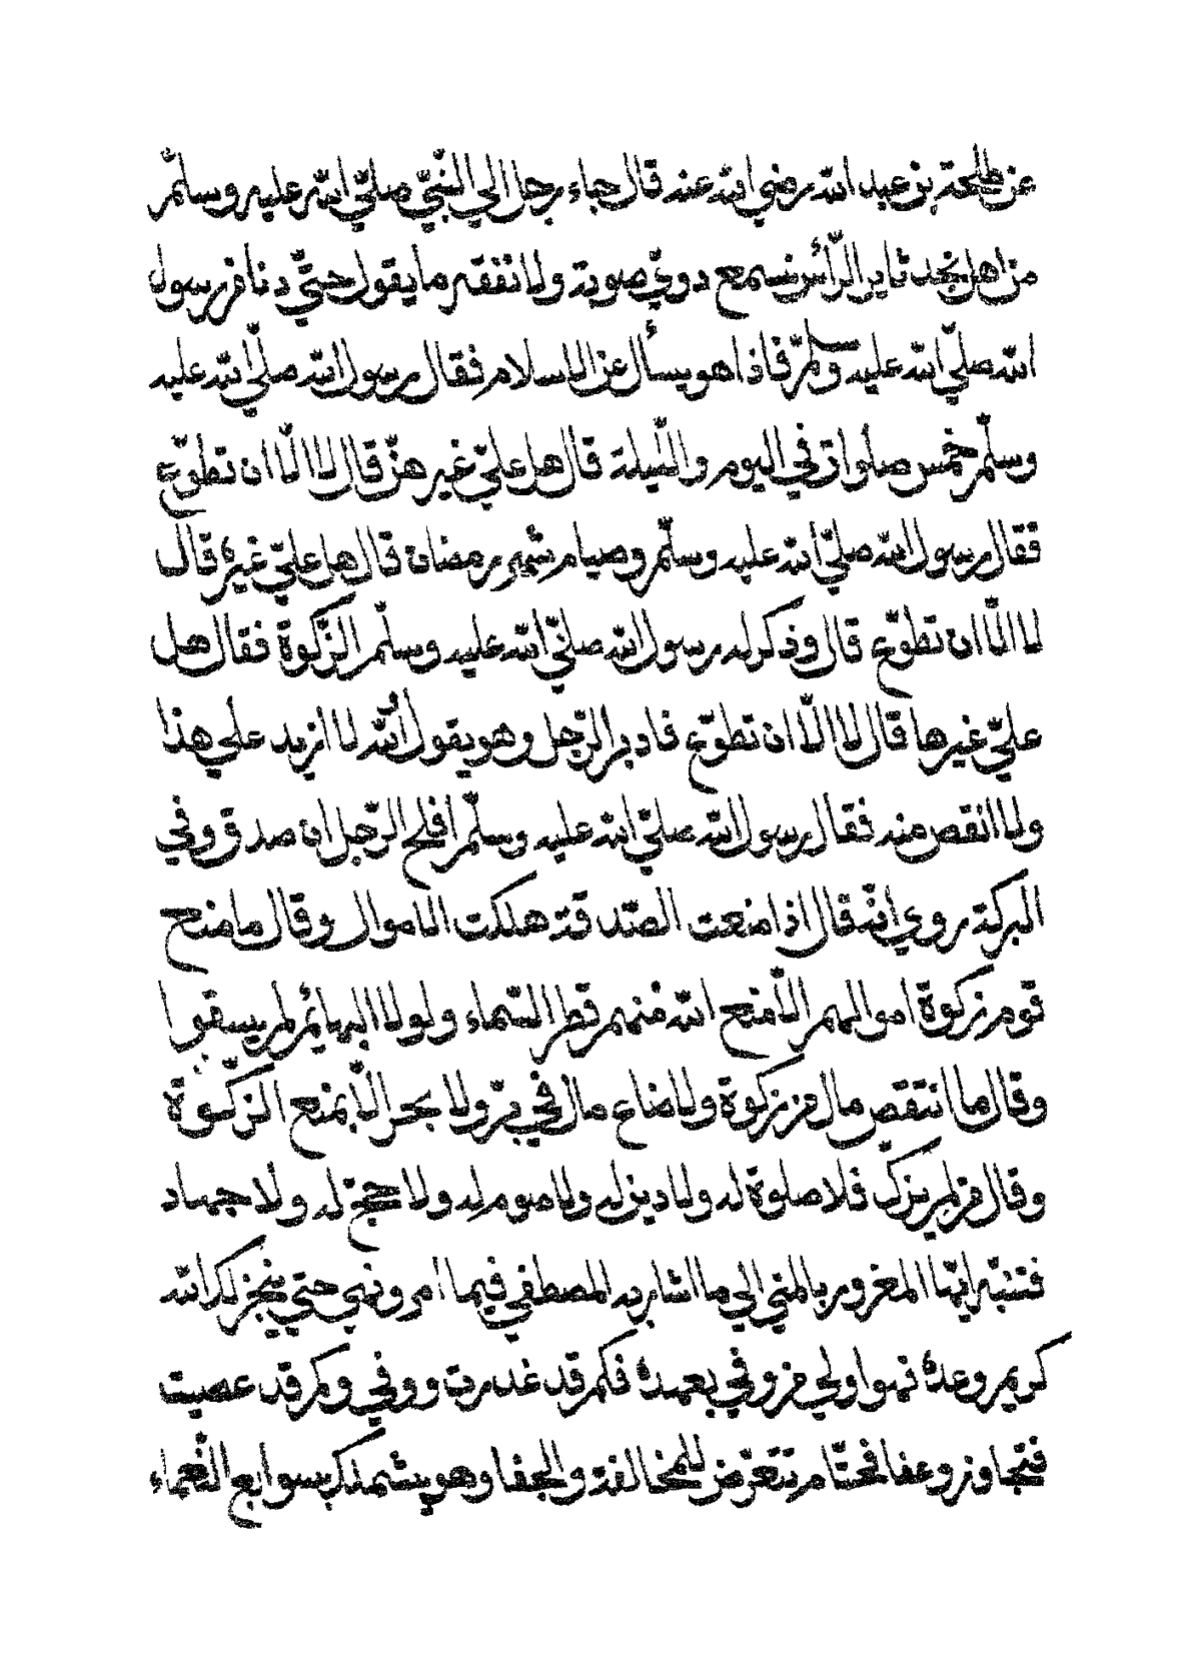 عن طلحة بن عبد الله رضي الله عنه قال جاء رجل الي النّبيّ صلّي الله عليه وسلّم
من اهل نجد ثاير الرّأس نسمع دويّ صوته ولا نفقه ما يقول حتيّ دنا من رسول
الله صلّي الله عليه وسلّم فاذا هو يسأل عن الاسلام فقال رسول الله صلّي الله عليه
وسلّم خمس صلوات في اليوم واللّيلة قال هل عليّ غيرهنّ قال لا الّا ان تطوّع
فقال رسول الله صلّي الله عليه وسلّم وصيام شهر رمضان قال هل عليّ غيره قال
لا الّا ان تطوّع قال وذكر له رسول الله صلّي الله عليه وسلّم الزّكوة فقال هل
عليّ غيرها قال لا الّا ان تطوّع فادبر الرّجل وهو يقول والله لا ازيد علي هذا
ولا انقص منه فقال رسول الله صلّي الله عليه وسلّم افلح الرّجل ان صدق وفي
البركة روي انّه قال اذا منعت الصّدقة هلكت الاموال وقال ما منع
قوم زكوة اموالهم الّا منع الله منهم قطر السّماء ولولا البهائم لم يسقوا
وقال ما انتقص مال من زكوة ولا ضاع مال في برّ ولا بحر الّا بمنع الزّكوة
وقال من لم يزكّ فلا صلوة له ولا دين له ولا صوم له ولا حجّ له ولا جهاد
فتنبّه ايّها المغرور بالمني الي ما اشار به المصطفي فيما امر ونهي حتي ينجز لك الله
كريم وعده فهو اولي من وفي بعهده فكم قد غدرت ووفي وكم قد عصيت
فتجاوز وعفا فحتّام تتعرّض للمخالفة والجفا وهو يشملك بسوابغ النّعماء